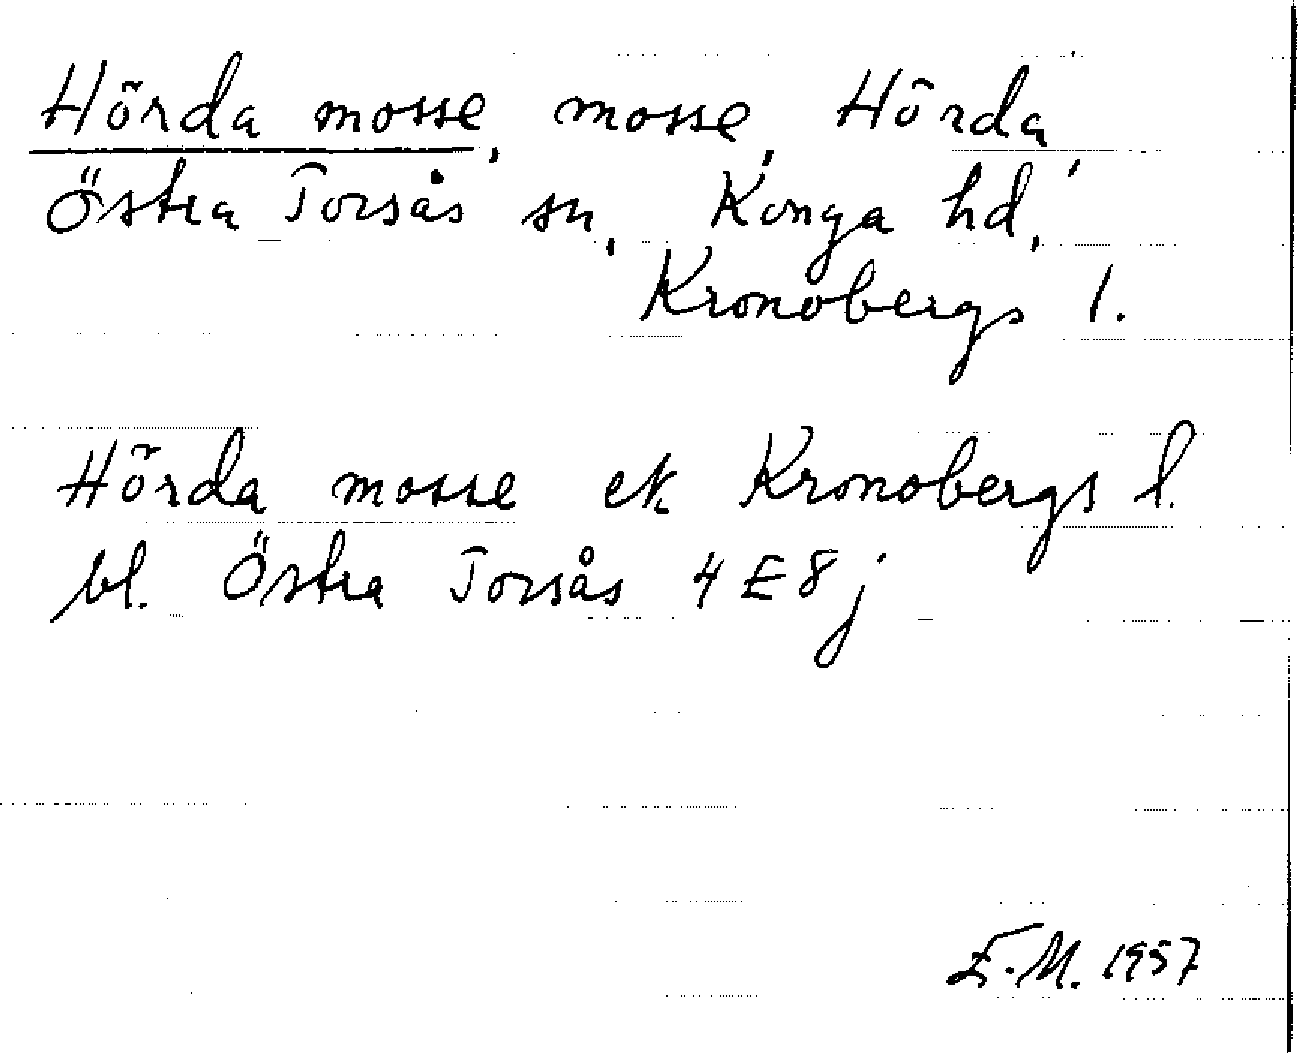 Hörda mosse, mosse, Hörda,
Östra Torsås sn, Konga hd,
Kronobergs l.
Hörda mosse ek Kronobergs l.
bl. Östra Torsås 4E8j
E.M. 1957